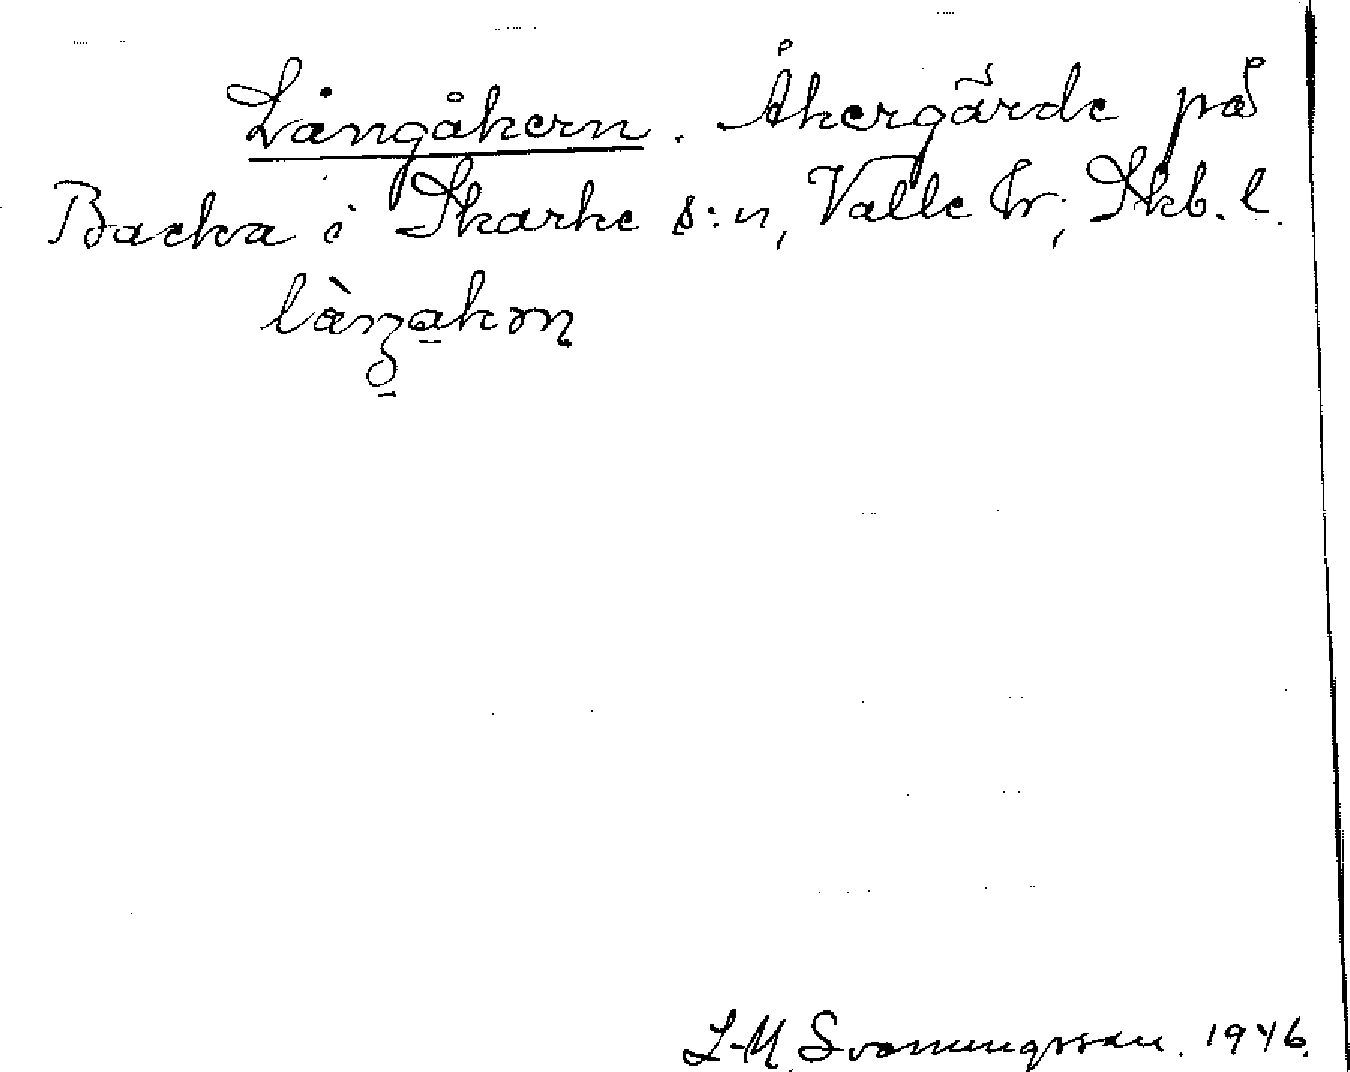 Långåkern. Åkergärde på
Backa i Skarke s:n, Valle hr, Skb. l.
L-M. Svanungsson. 1946.